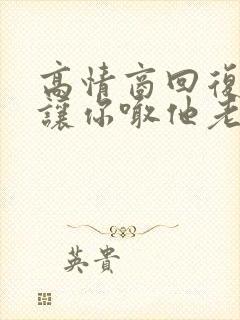 高情商回復
讓你啾他老
英貴